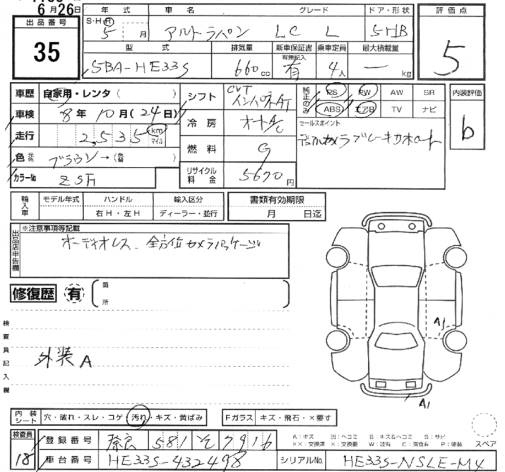 6月26日
出品番号
35
年式
S・H・R
5 年 月
車名
アルトラパン
グレード
LC L
ドア・形状
5HB
評価点
5
型式
5BA-HE33S
排気量
660cc
新車保証書
有無記入
有
乗車定員
4人
最大積載量
— kg
車歴 自家用・レンタ( )
車検 8年10月(24日)
走行 2,535 km マイル
色
ブラウン→
カラーNo ZSH
シフト CVT インパネAT
冷房 オートAC
燃料 G
リサイクル料金 5670円
PS PW AW SR
ABS エアB TV ナビ
セールスポイント
内装評価
b
輸入車
モデル年式 ハンドル 輸入区分
右H・左H ディーラー・並行
書類有効期限
月 日迄
出品店申告欄
※注意事項等記載
オーディオレス、全方位カメラパッケージ
修復歴 有 箇所
検査員記入欄
外装A
A1
A1
内装シート 穴・破れ・スレ・コゲ・汚れ・キズ・黄ばみ
Fガラス キズ・飛石・×要す
スペア
検査員
18
登録番号
581 そ 7916
車台番号 HE33S-432498
シリアルNo HE33S-NSLE-M4